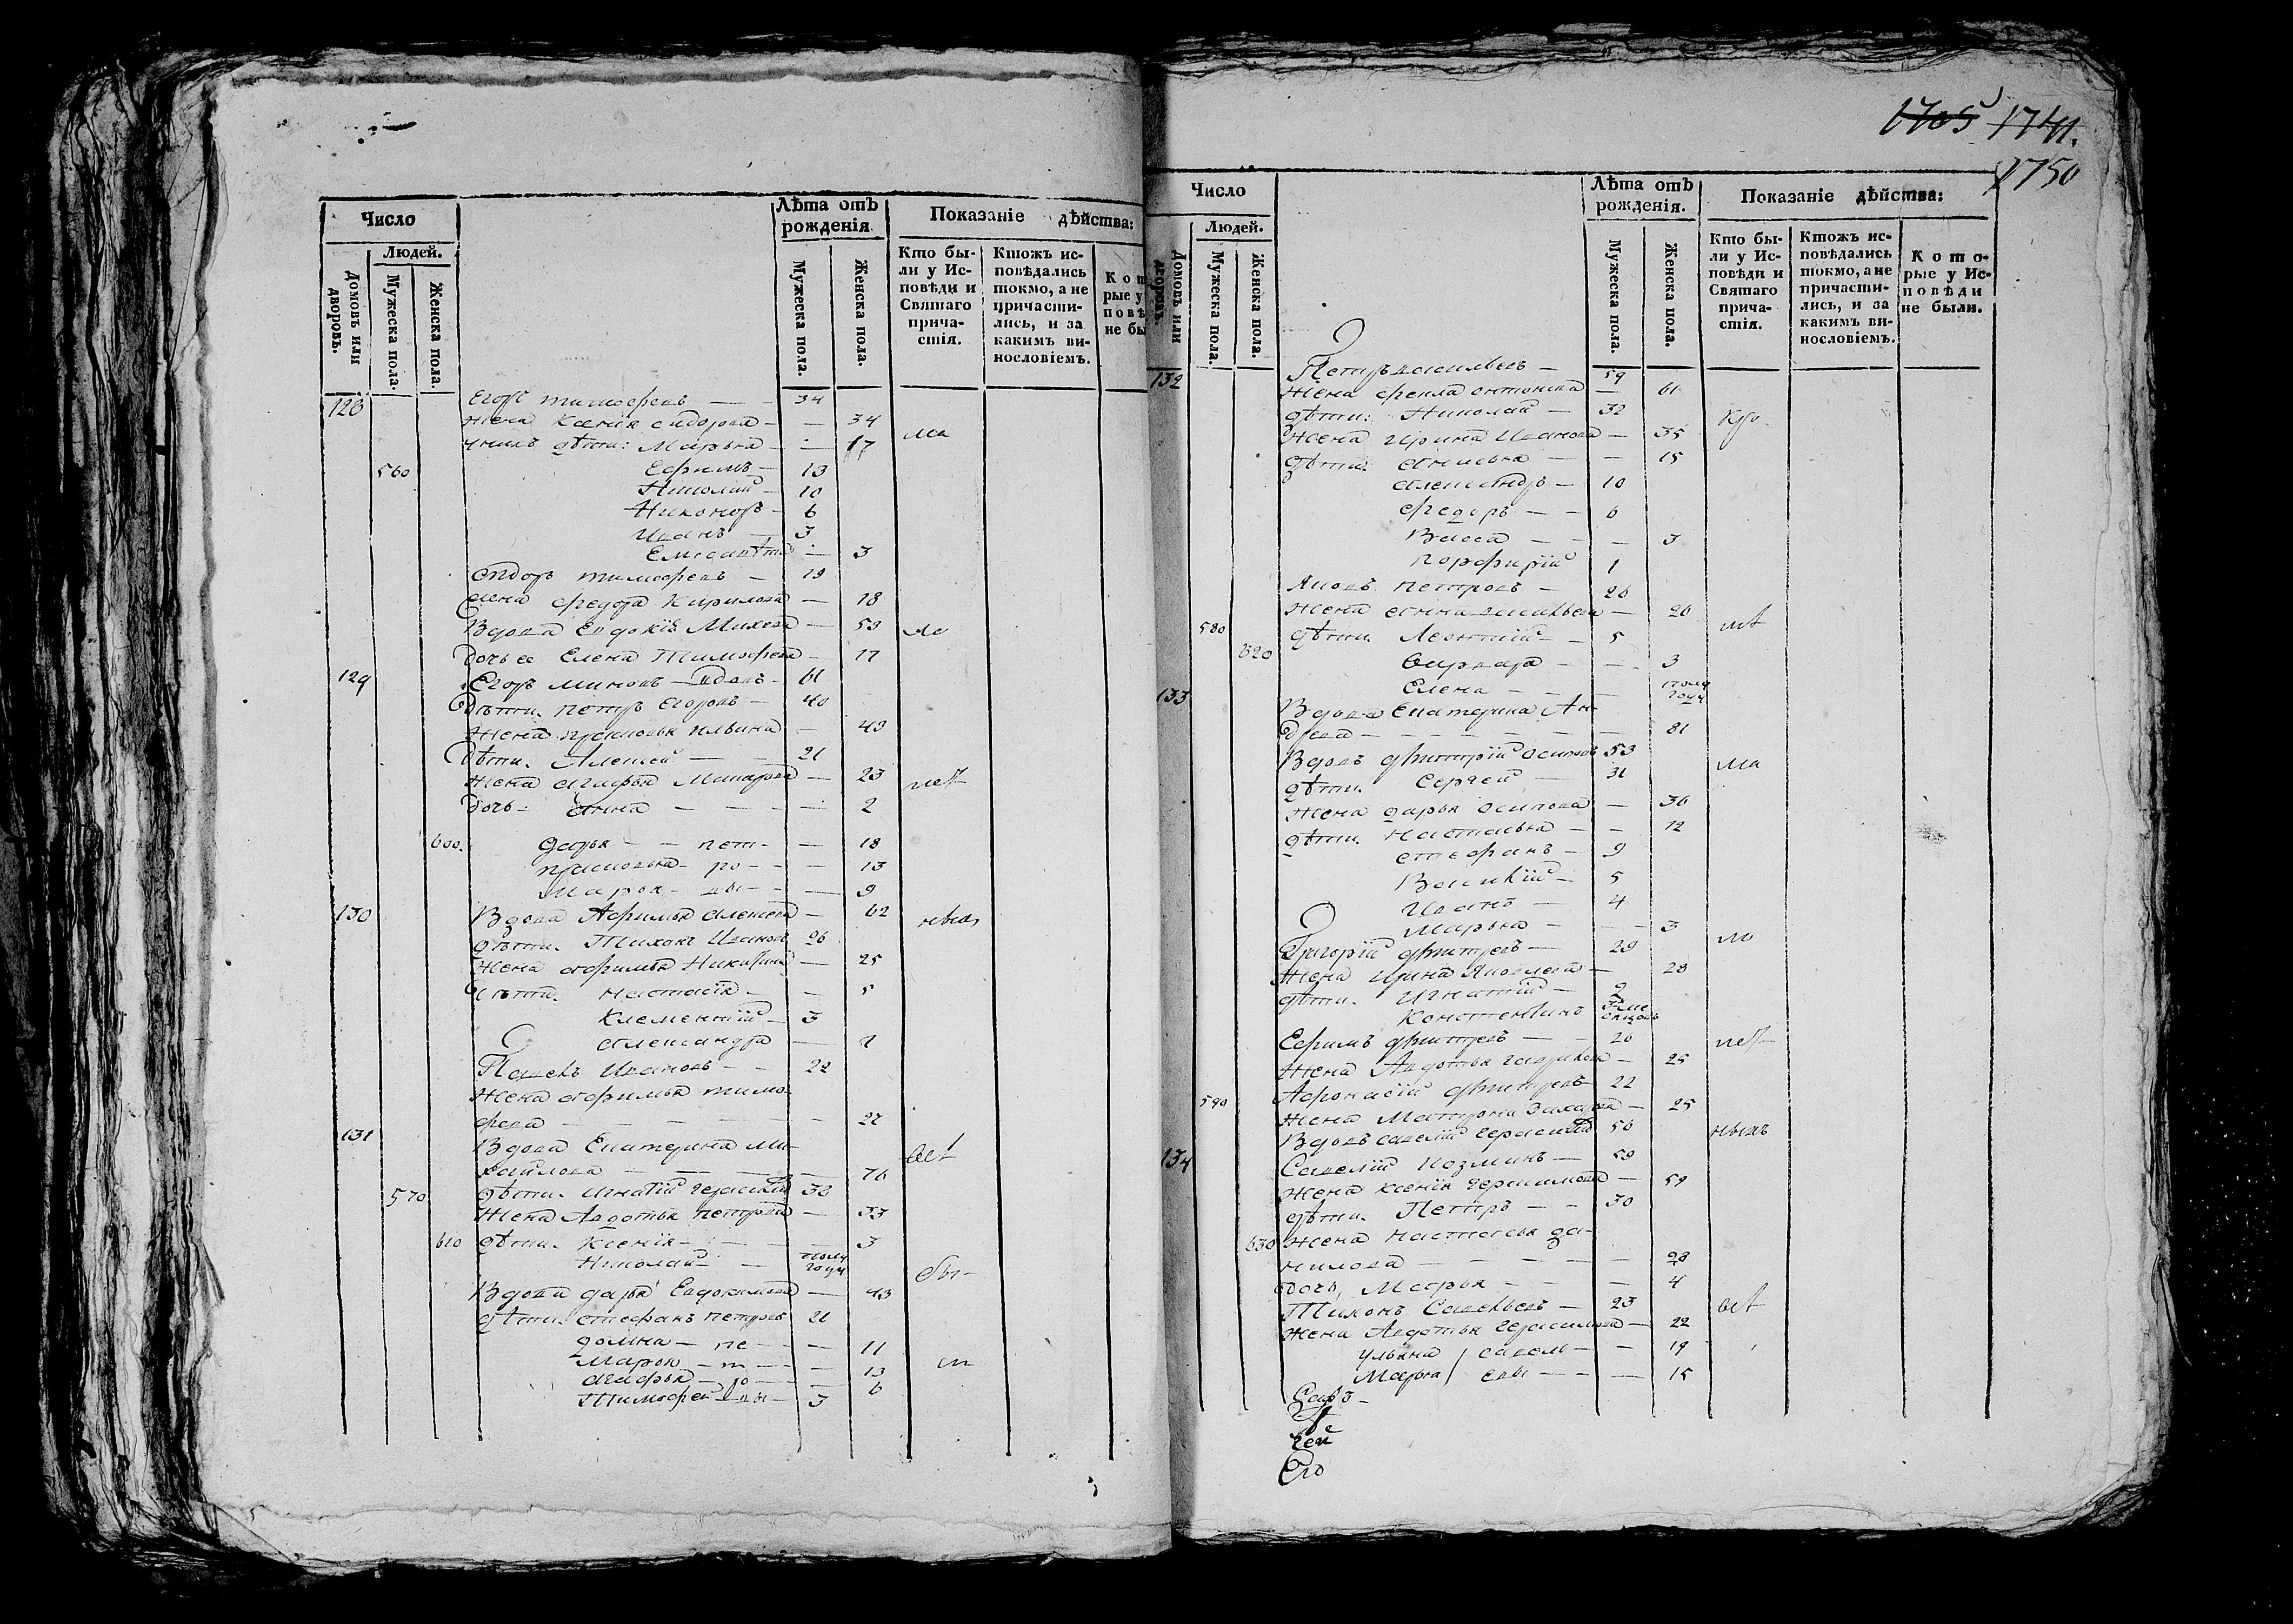 Число
Людей.
Домовъ или дворовъ.
Мужеска пола.
Женска пола.
Лѣта отъ рожденія
Мужеска пола.
Женска пола.
Показаніе дѣйства:
Кто были у Исповѣди и Святаго причастія.
Ктожъ исповѣдались токмо, а не причастились, и за какимъ винословіемъ.
128 Егоръ тимофеевъ — 34
жена Ксенія сидорова — 34
у нихъ дѣти: Марья — 17 ма
560 Ефимъ — 13
Николай — 10
Никоноръ — 6
Иванъ — 3
Елисавѣта — 3
тимофеевъ — 19
жена Кирилова — 18
Вдова Евдокія Михеева — 59
дочь ее Елена Тимофеева — 17
129 Егоръ миновъ — вдовъ — 61
дѣти. петръ Егоровъ — 40
жена прасковья ильина — 43
дѣти. Алексей — 21
жена агафья Макарова — 23
дочь — Анна — 2
600. дарья — пет — 18
прасковья — ро — 13
Марья — вы — 9
130 Вдова Афимья алексеева — 62
дѣти. Тихонъ Ивановъ 26
жена афимья Никитина — 25
дѣти. настасія — 5
Клементій — 3
александра —
Павелъ Ивановъ — 22
жена афимья тимо-
феева — 22
131 Вдова Екатерина ми-
хайлова — 76
570 дѣти. игнатій герасимовъ 38
жена Авдотья петрова — 33
610 дѣти. ксенія — 3
Николай — полу года
Вдова дарья Евдокимова — 43
дѣти. стефанъ петровъ 21
домна — пе — 11
Марья — т — 13
агафья — ро — 6
Тимофей — вы — 3
1705 1741.
1750
Число
Людей.
Домовъ или дворовъ.
Мужеска пола.
Женска пола.
Лѣта отъ рожденія.
Мужеска пола.
Женска пола.
Показаніе дѣйства:
Кто были у Исповѣди и Святаго причастія.
Ктожъ исповѣдались токмо, а не причастились, и за какимъ винословіемъ.
Которые у Исповѣди не были.
132 Петръ васильевъ — 59
жена антонова — 61
дѣти: Николай — 32
жена Ирина Иванова — 35
дѣти. — 15
александръ — 10
федоръ — 6
Васса — 3
порфирій 1
Яковъ петровъ — 26
жена анна васильева — 26
580 дѣти. Леонтій — 5
620 варвара — 3
Елена — полу года
133 Вдова Екатерина Ан-
дреева — 81
Вдовъ дмитрій осиповъ 53
дѣти. Сергей — 31 ма
жена дарья осипова — 36
дѣти. настасья — 12
стефанъ — 9
5
Иванъ — 4
Марья — 3
Григорій дмитревъ — 29
жена ирина Яковлева — 28
дѣти. Игнатій — 2
Константинъ
Ефимъ дмитревъ — 26
жена Авдотья гаврилова — 25
Афонасій дмитревъ 22
590 жена Матрона захарова — 25
Вдовъ савелій герасимовъ 56
134 Савелій козминъ — 59
жена ксенія герасимова — 59
дѣти. Петръ — 30
630 жена настасья да-
нилова — 28
дочь, Марья — 4
Тихонъ Савельевъ — 23
жена Авдотья герасимова — 22
Ульяна савель — 19
Марья евы — 15